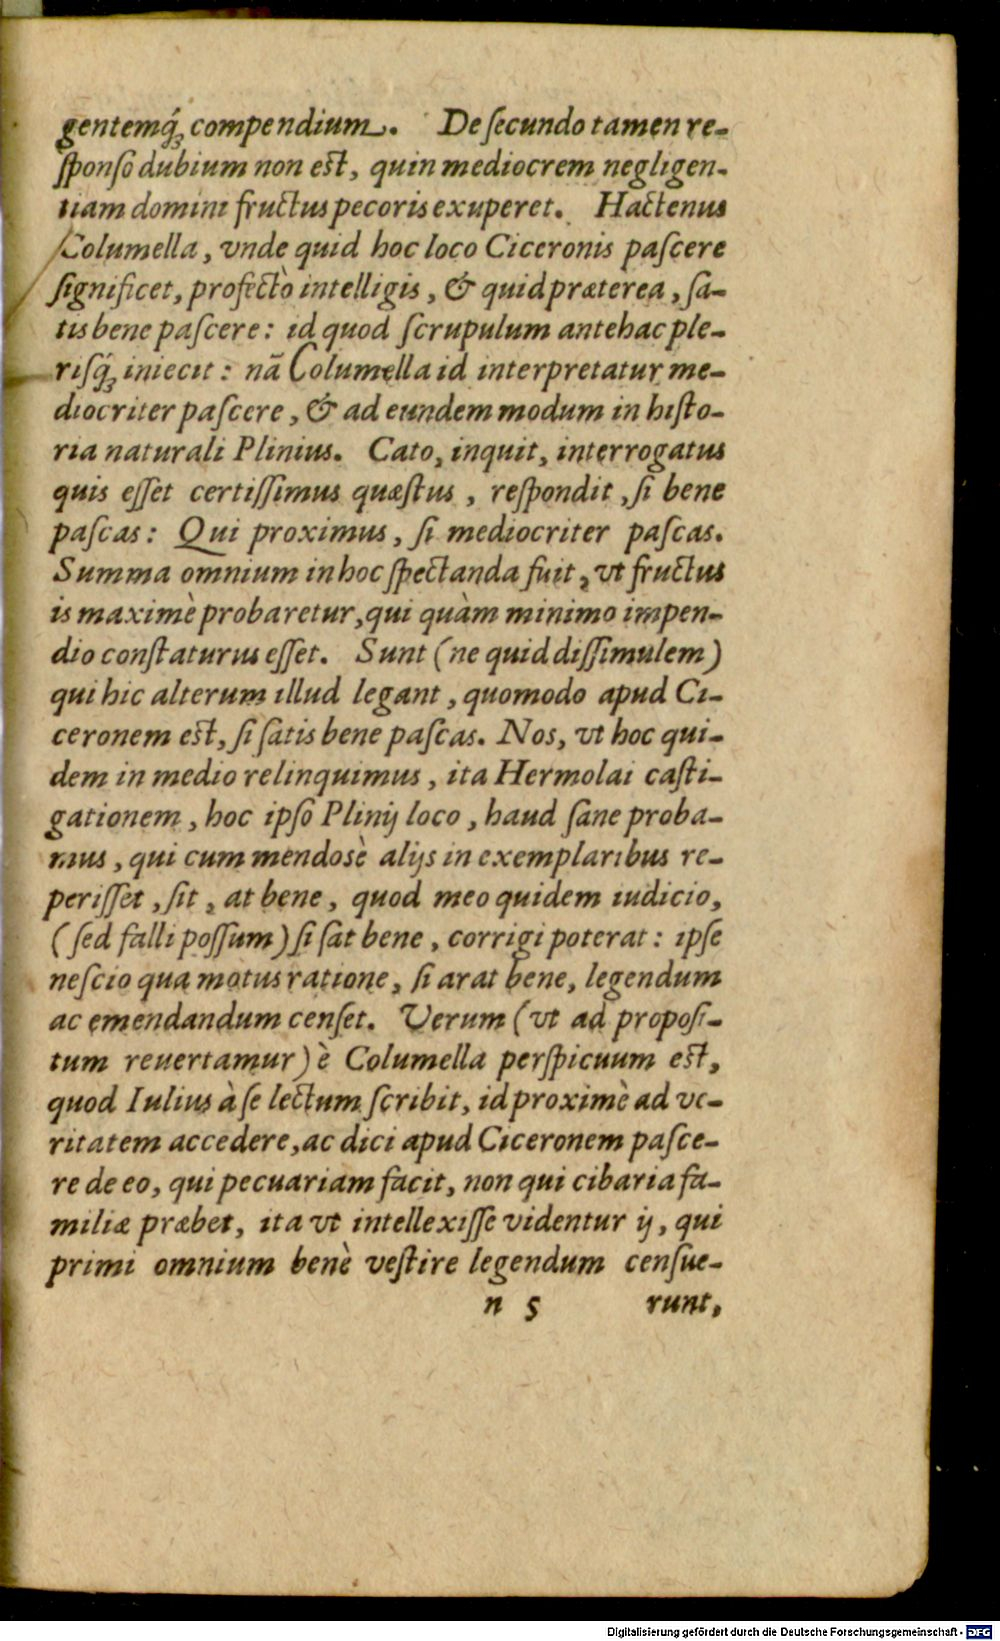 gentemq́ꝫ compendium. De ſecundo tamen re-
ſponſo dubium non eſt, quin mediocrem negligen-
tiam domini fructus pecoris exuperet. Hactenus
Columella, vnde quid hoc loco Ciceronis paſcere
ſignificet, profectò intelligis, & quid præterea, ſa-
tis bene paſcere: id quod ſcrupulum antehac ple-
riſq́ꝫ iniecit: nã Columella id interpretatur me-
diocriter paſcere, & ad eundem modum in hiſto-
ria naturali Plinius. Cato, inquit, interrogatus
quis eſſet certiſſimus quæſtus, reſpondit, ſi bene
paſcas: Qui proximus, ſi mediocriter paſcas.
Summa omnium in hoc ſpectanda fuit, vt fructus
is maximè probaretur, qui quàm minimo impen-
dio conſtaturus eſſet. Sunt (ne quid diſſimulem)
qui hic alterum illud legant, quomodo apud Ci-
ceronem eſt, ſi ſatis bene paſcas. Nos, vt hoc qui-
dem in medio relinquimus, ita Hermolai caſti-
gationem, hoc ipſo Plinij loco, haud ſane proba-
mus, qui cum mendosè alijs in exemplaribus re-
periſſet, ſit, at bene, quod meo quidem iudicio,
(ſed falli poſſum) ſi ſat bene, corrigi poterat: ipſe
neſcio qua motus ratione, ſi arat bene, legendum
ac emendandum cenſet. Verum (vt ad propoſi-
tum reuertamur) è Columella perſpicuum eſt,
quod Iulius à ſe lectum ſcribit, id proximè ad ve-
ritatem accedere, ac dici apud Ciceronem paſce-
re de eo, qui pecuariam facit, non qui cibaria fa-
miliæ præbet, ita vt intellexiſſe videntur ij, qui
primi omnium benè veſtire legendum cenſue-
n 5 runt,
Digitalisierung gefördert durch die Deutsche Forschungsgemeinschaft - DFG